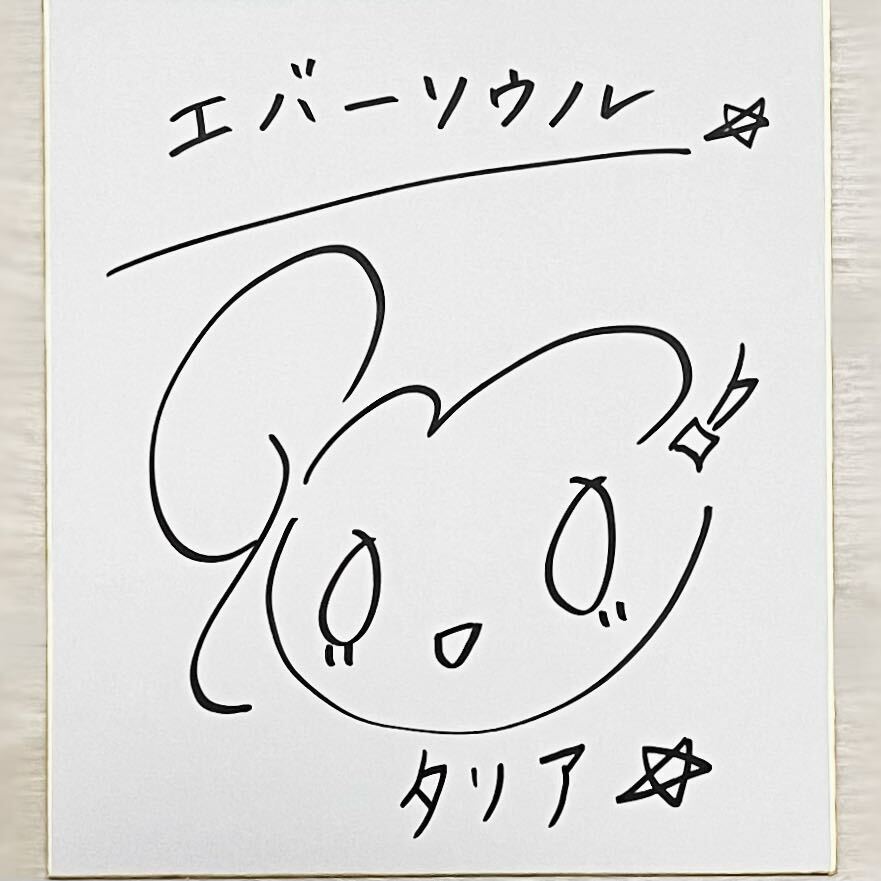 エバーソウル
タリア